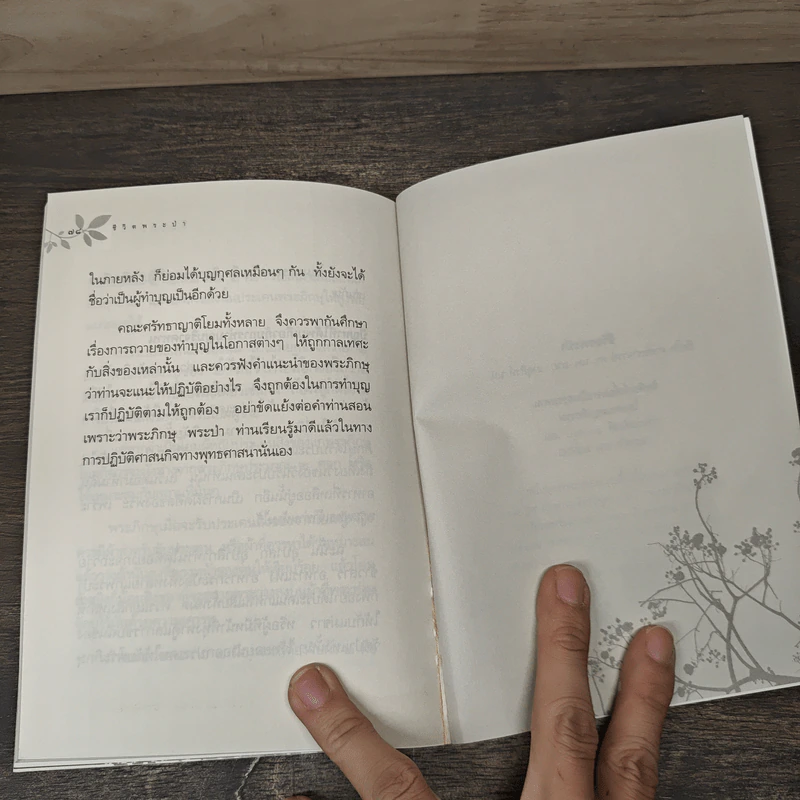 ๗๘ ชีวิตพระป่า
ในภายหลัง ก็ย่อมได้บุญกุศลเหมือนๆ กัน ทั้งยังจะได้
ชื่อว่าเป็นผู้ทำบุญเป็นอีกด้วย
คณะศรัทธาญาติโยมทั้งหลาย จึงควรพากันศึกษา
เรื่องการถวายของทำบุญในโอกาสต่างๆ ให้ถูกกาลเทศะ
กับสิ่งของเหล่านั้น และควรฟังคำแนะนำของพระภิกษุ
ว่าท่านจะแนะให้ปฏิบัติอย่างไร จึงถูกต้องในการทำบุญ
เราก็ปฏิบัติตามให้ถูกต้อง อย่าขัดแย้งต่อคำท่านสอน
เพราะว่าพระภิกษุ พระป่า ท่านเรียนรู้มาดีแล้วในทาง
การปฏิบัติศาสนกิจทางพุทธศาสนานั่นเอง